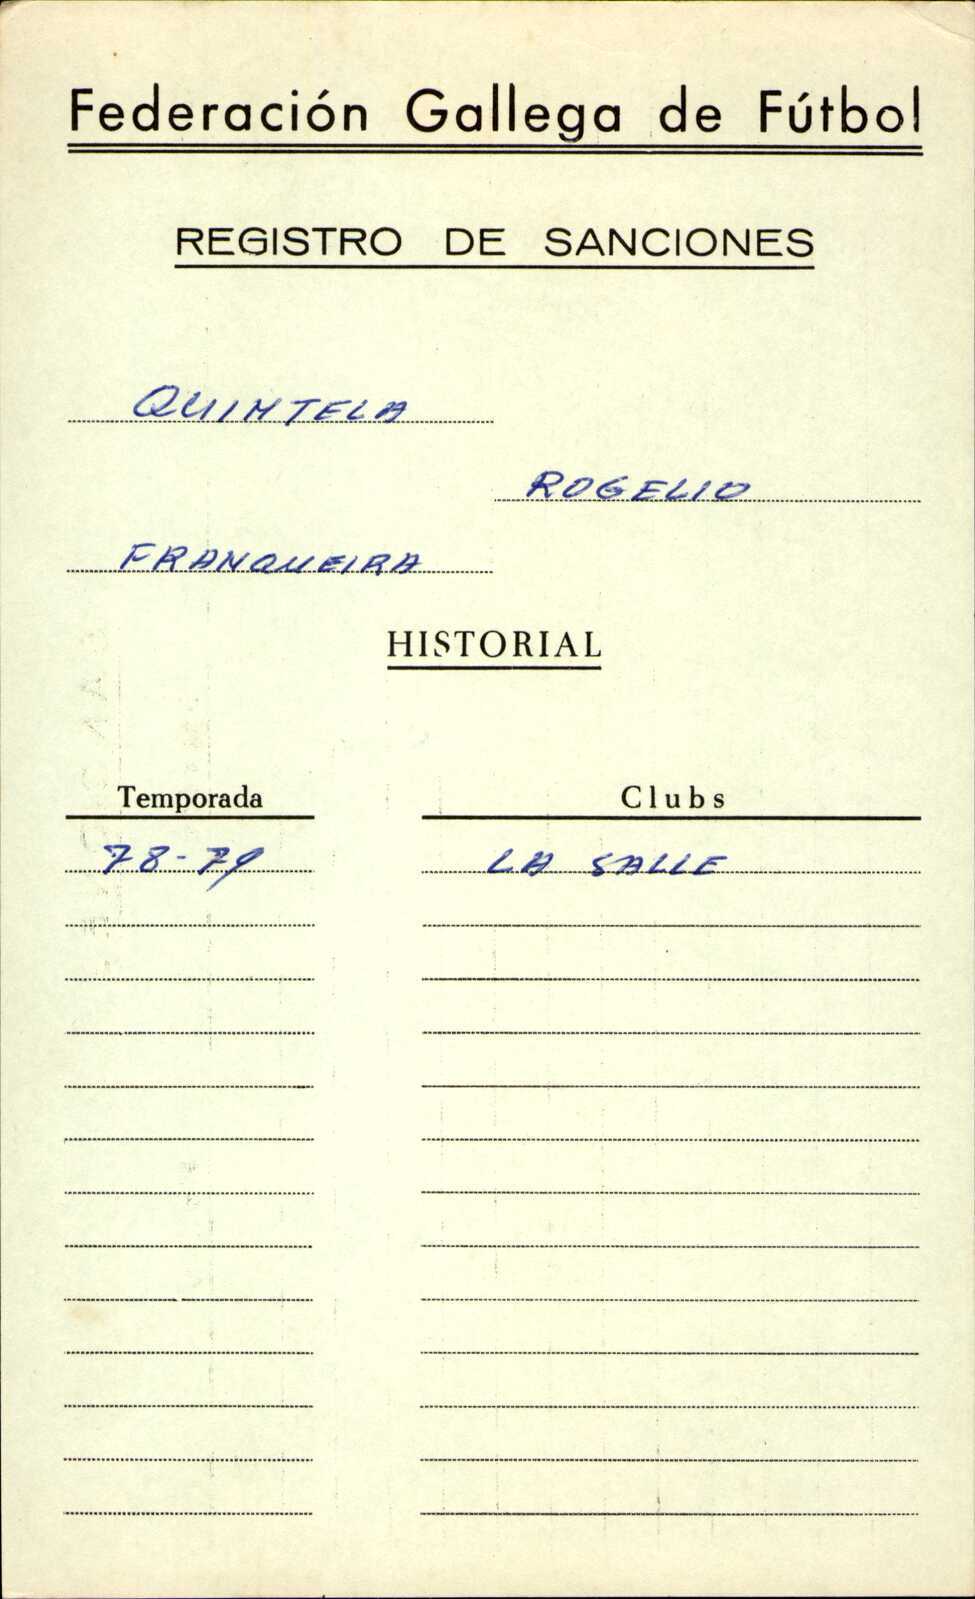 Federación Gallega de Fútbol
REGISTRO DE SANCIONES
QUINTELA
ROGELIO
FRANQUEIRA
HISTORIAL
Temporada Clubs
78-79 LA SALLE